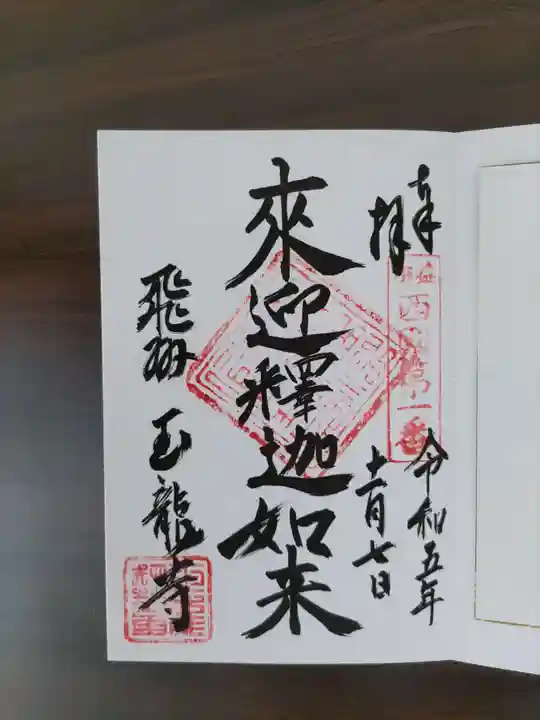 奉拝
西国第一番
令和五年
十一月七日
來迎釋迦如来
飛州 玉龍寺